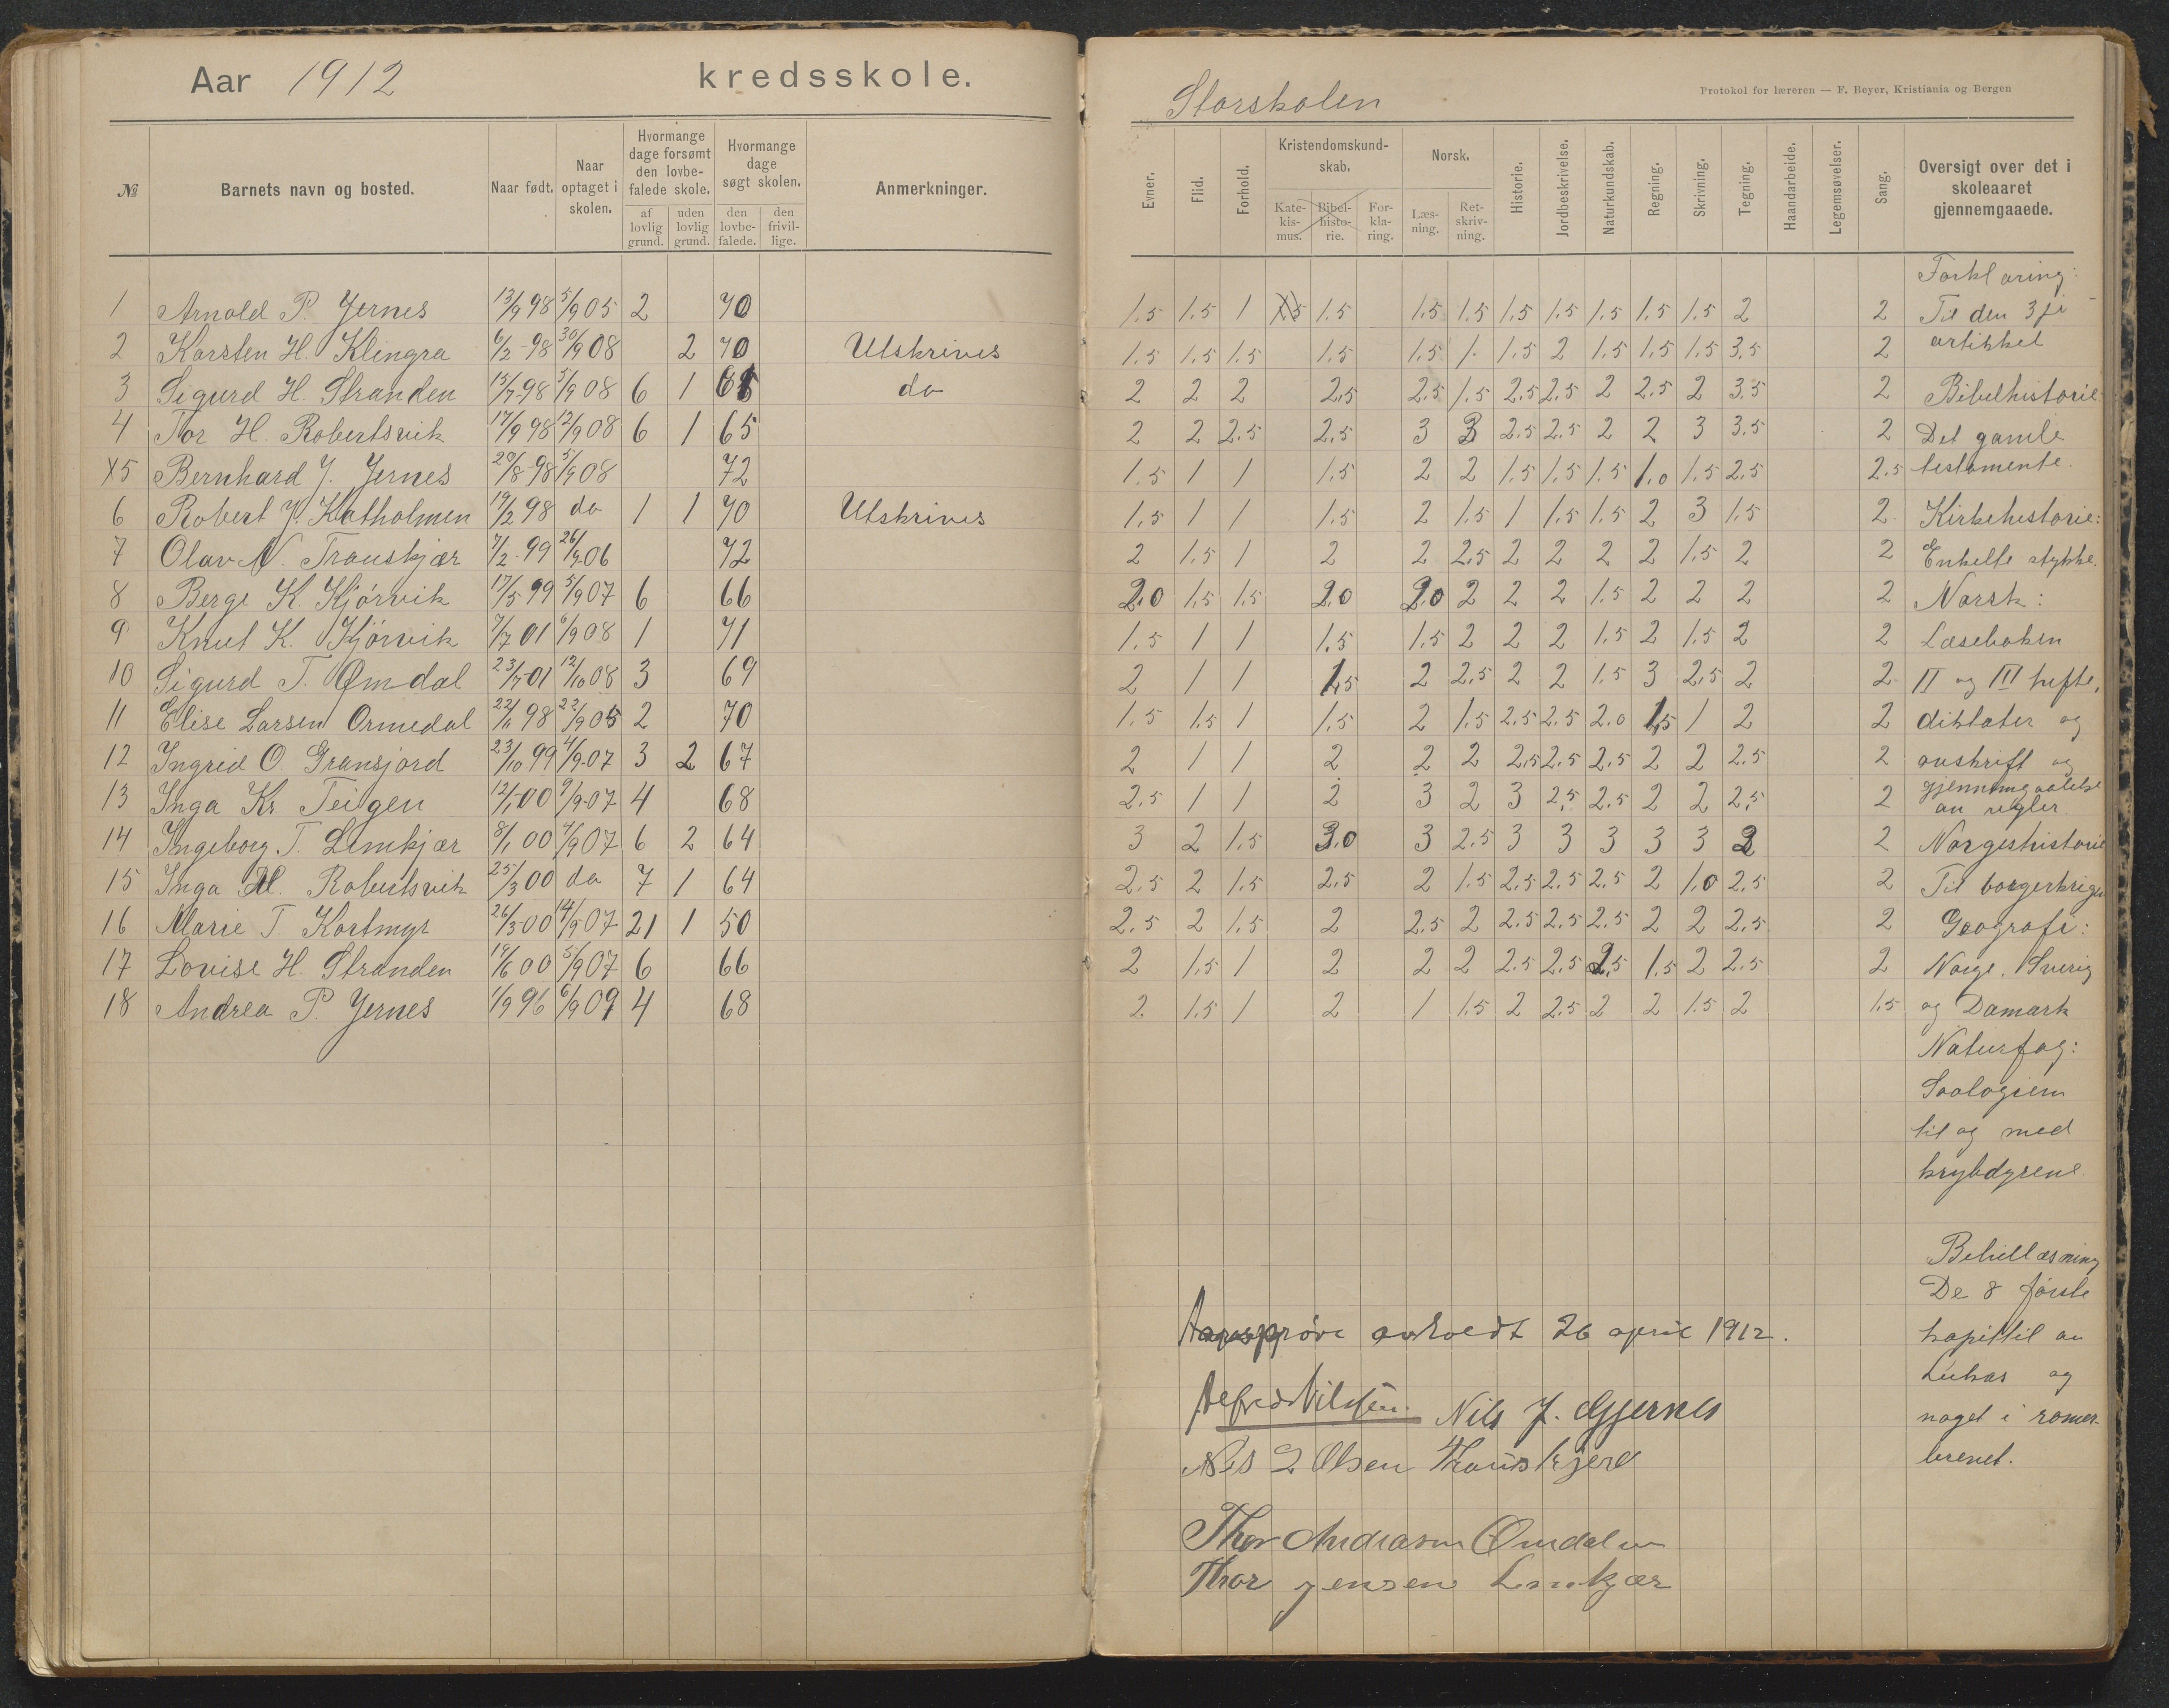 Aar 1912 kredsskole.
№ Barnets navn og bosted. Naar født. Naar optaget i skolen. Hvormange dage forsømt den lovbefalede skole. af lovlig grund. uden lovlig grund. Hvormange dage søgt skolen. den lovbefalede. den frivillige. Anmerkninger.
1 Arnold P. Jernes 13/9 98 5/9 05 2 70
2 Karsten H. Klingra 6/2-98 30/9 08 2 70 Utskrives
3 Sigurd H. Stranden 15/7-98 5/9 08 6 1 65 do
4 Tor H. Robertsvik 17/9 98 12/9 08 6 1 65
X5 Bernhard J. Jernes 20/8-98 5/9 08 72
6 Robert J. Katholmen 19/2 98 do 1 1 70 Utskrives
7 Olav N. Transkjær 7/2-99 26/9 06 72
8 Berge K. Kjørvik 17/5 99 5/9 07 6 66
9 Knut K. Kjørvik 7/7 01 6/9 08 1 71
10 Sigurd T. Ømdal 23/7-01 12/10 08 3 69
11 Elise Larsen Ormedal 22/1 98 22/9 05 2 70
12 Ingrid O. Gransjord 23/10 99 4/9-07 3 2 67
13 Inga Kr. Teigen 12/1-00 9/9-07 4 68
14 Ingeborg T. Limkjær 8/1 00 4/9 07 6 2 64
15 Inga M. Robertsvik 25/3 00 do 7 1 64
16 Marie T. Kortmyr 26/3-00 14/9 07 21 1 50
17 Lovise H. Stranden 19/6 00 5/9 07 6 66
18 Andrea P. Jernes 1/9 96 6/9 09 4 68
Storskolen
Protokol for læreren — F. Beyer, Kristiania og Bergen
Evner. Flid. Forhold. Kristendomskundskab. Katekismus. Bibelhistorie. Forklaring. Norsk. Læsning. Retskrivning. Historie. Jordbeskrivelse. Naturkundskab. Regning. Skrivning. Tegning. Haandarbeide. Legemsøvelser. Sang. Oversigt over det i skoleaaret gjennemgaaede.
1.5 1.5 1 1.5 1.5 1.5 1.5 1.5 1.5 1.5 1.5 2 2
1.5 1.5 1.5 1.5 1.5 1. 1.5 2 1.5 1.5 1.5 3.5 2
2 2 2 2.5 2.5 1.5 2.5 2.5 2 2.5 2 3.5 2
2 2 2.5 2.5 3 3 2.5 2.5 2 2 3 3.5 2
1.5 1 1 1.5 2 2 1.5 1.5 1.5 1.0 1.5 2.5 2.5
1.5 1 1 1.5 2 1.5 1 1.5 1.5 2 3 1.5 2
2 1.5 1 2 2 2.5 2 2 2 2 1.5 2 2
2.0 1.5 1.5 2.0 2.0 2 2 2 1.5 2 2 2 2
1.5 1 1 1.5 1.5 2 2 2 1.5 2 1.5 2 2
2 1 1 1.5 2 2.5 2 2 1.5 3 2.5 2 2
1.5 1.5 1 1.5 2 1.5 2.5 2.5 2.0 1.5 1 2 2
2 1 1 2 2 2 2.5 2.5 2.5 2 2 2.5 2
2.5 1 1 2 3 2 3 2.5 2.5 2 2 2.5 2
3 2 1.5 3.0 3 2.5 3 3 3 3 3 2 2
2.5 2 1.5 2.5 2 1.5 2.5 2.5 2.5 2 1.0 2.5 2
2.5 2 1.5 2 2.5 2 2.5 2.5 2.5 2 2 2.5 2
2 1.5 1 2 2 2 2.5 2.5 2.5 1.5 2 2.5 2
2 1.5 1 2 1 1.5 2 2.5 2 2 1.5 2 1.5
Forklaring:
Til den 3je
artikkel
Bibelhistorie:
Det gamle
testamente.
Kirkehistorie:
Enkelte stykke.
Norsk:
Læseboken
II og III hefte,
diktater og
avskrift og
gjennemgaaelse
av regler
Norgeshistorie
Til borgerkrigen
Geografi:
Norge, Sverig
og Damark
Naturfag:
Soologien
til og med
krybdyrene.
Bibellæsning
De 8 første
kapittel av
Lukas og
noget i romer-
brevet.
Aarsprøve avholdt 26 april 1912.
Alfred Nilsen. Nils J. Gjernes
Nils L Olsen Thranskjær
Thor Andrasen Ømdalen
Thor Jensen Limkjær